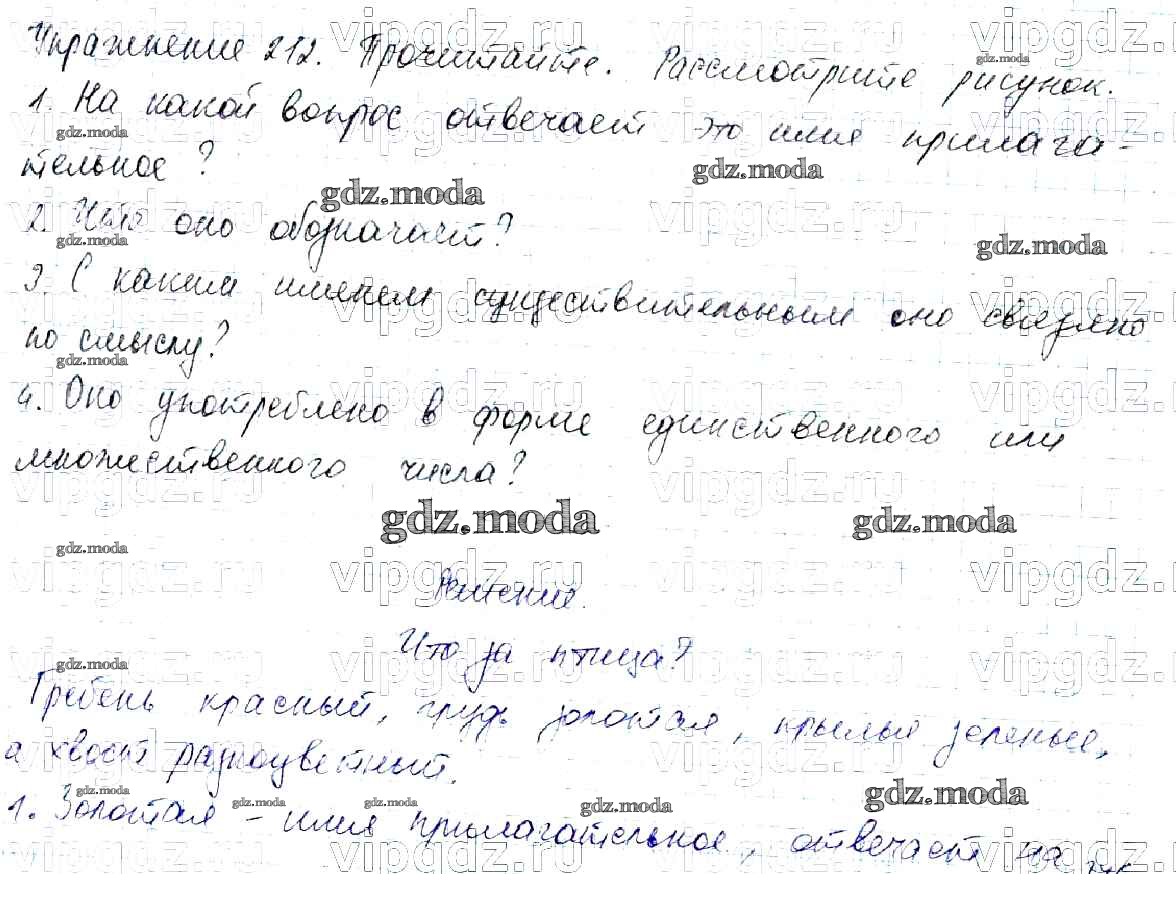 Упражнение 212. Прочитайте. Рассмотрите рисунок.
1. На какой вопрос отвечает это имя прилага-
тельное?
2. Что оно обозначает?
3. С каким именем существительным оно связано
по смыслу?
4. Оно употреблено в форме единственного или
множественного числа?
Решение.
Что за птица?
Гребень красный, грудь золотая, крылья зеленые,
а хвост разноцветный.
1. Золотая - имя прилагательное, отвечает на